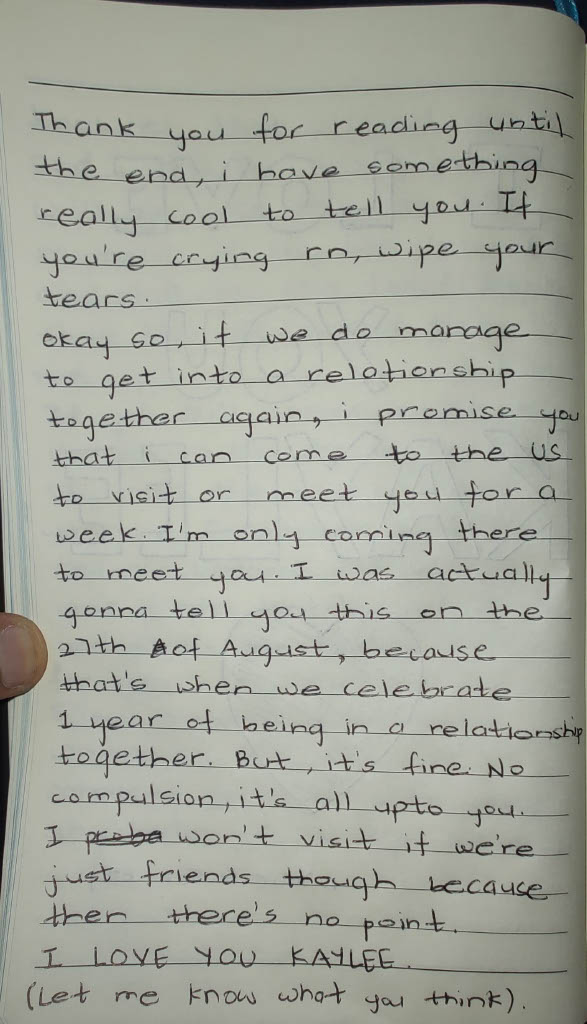 Thank you for reading until
the end, i have something
really cool to tell you. If
you're crying rn, wipe your
tears.
okay so, if we do manage
to get into a relationship
together again, i promise you
that i can come to the US
to visit or meet you for a
week. I'm only coming there
to meet you. I was actually
gonna tell you this on the
27th of August, because
that's when we celebrate
1 year of being in a relationship
together. But, it's fine. No
compulsion, it's all upto you.
I won't visit if we're
just friends though because
then there's no point.
I LOVE YOU KAYLEE.
(Let me know what you think).